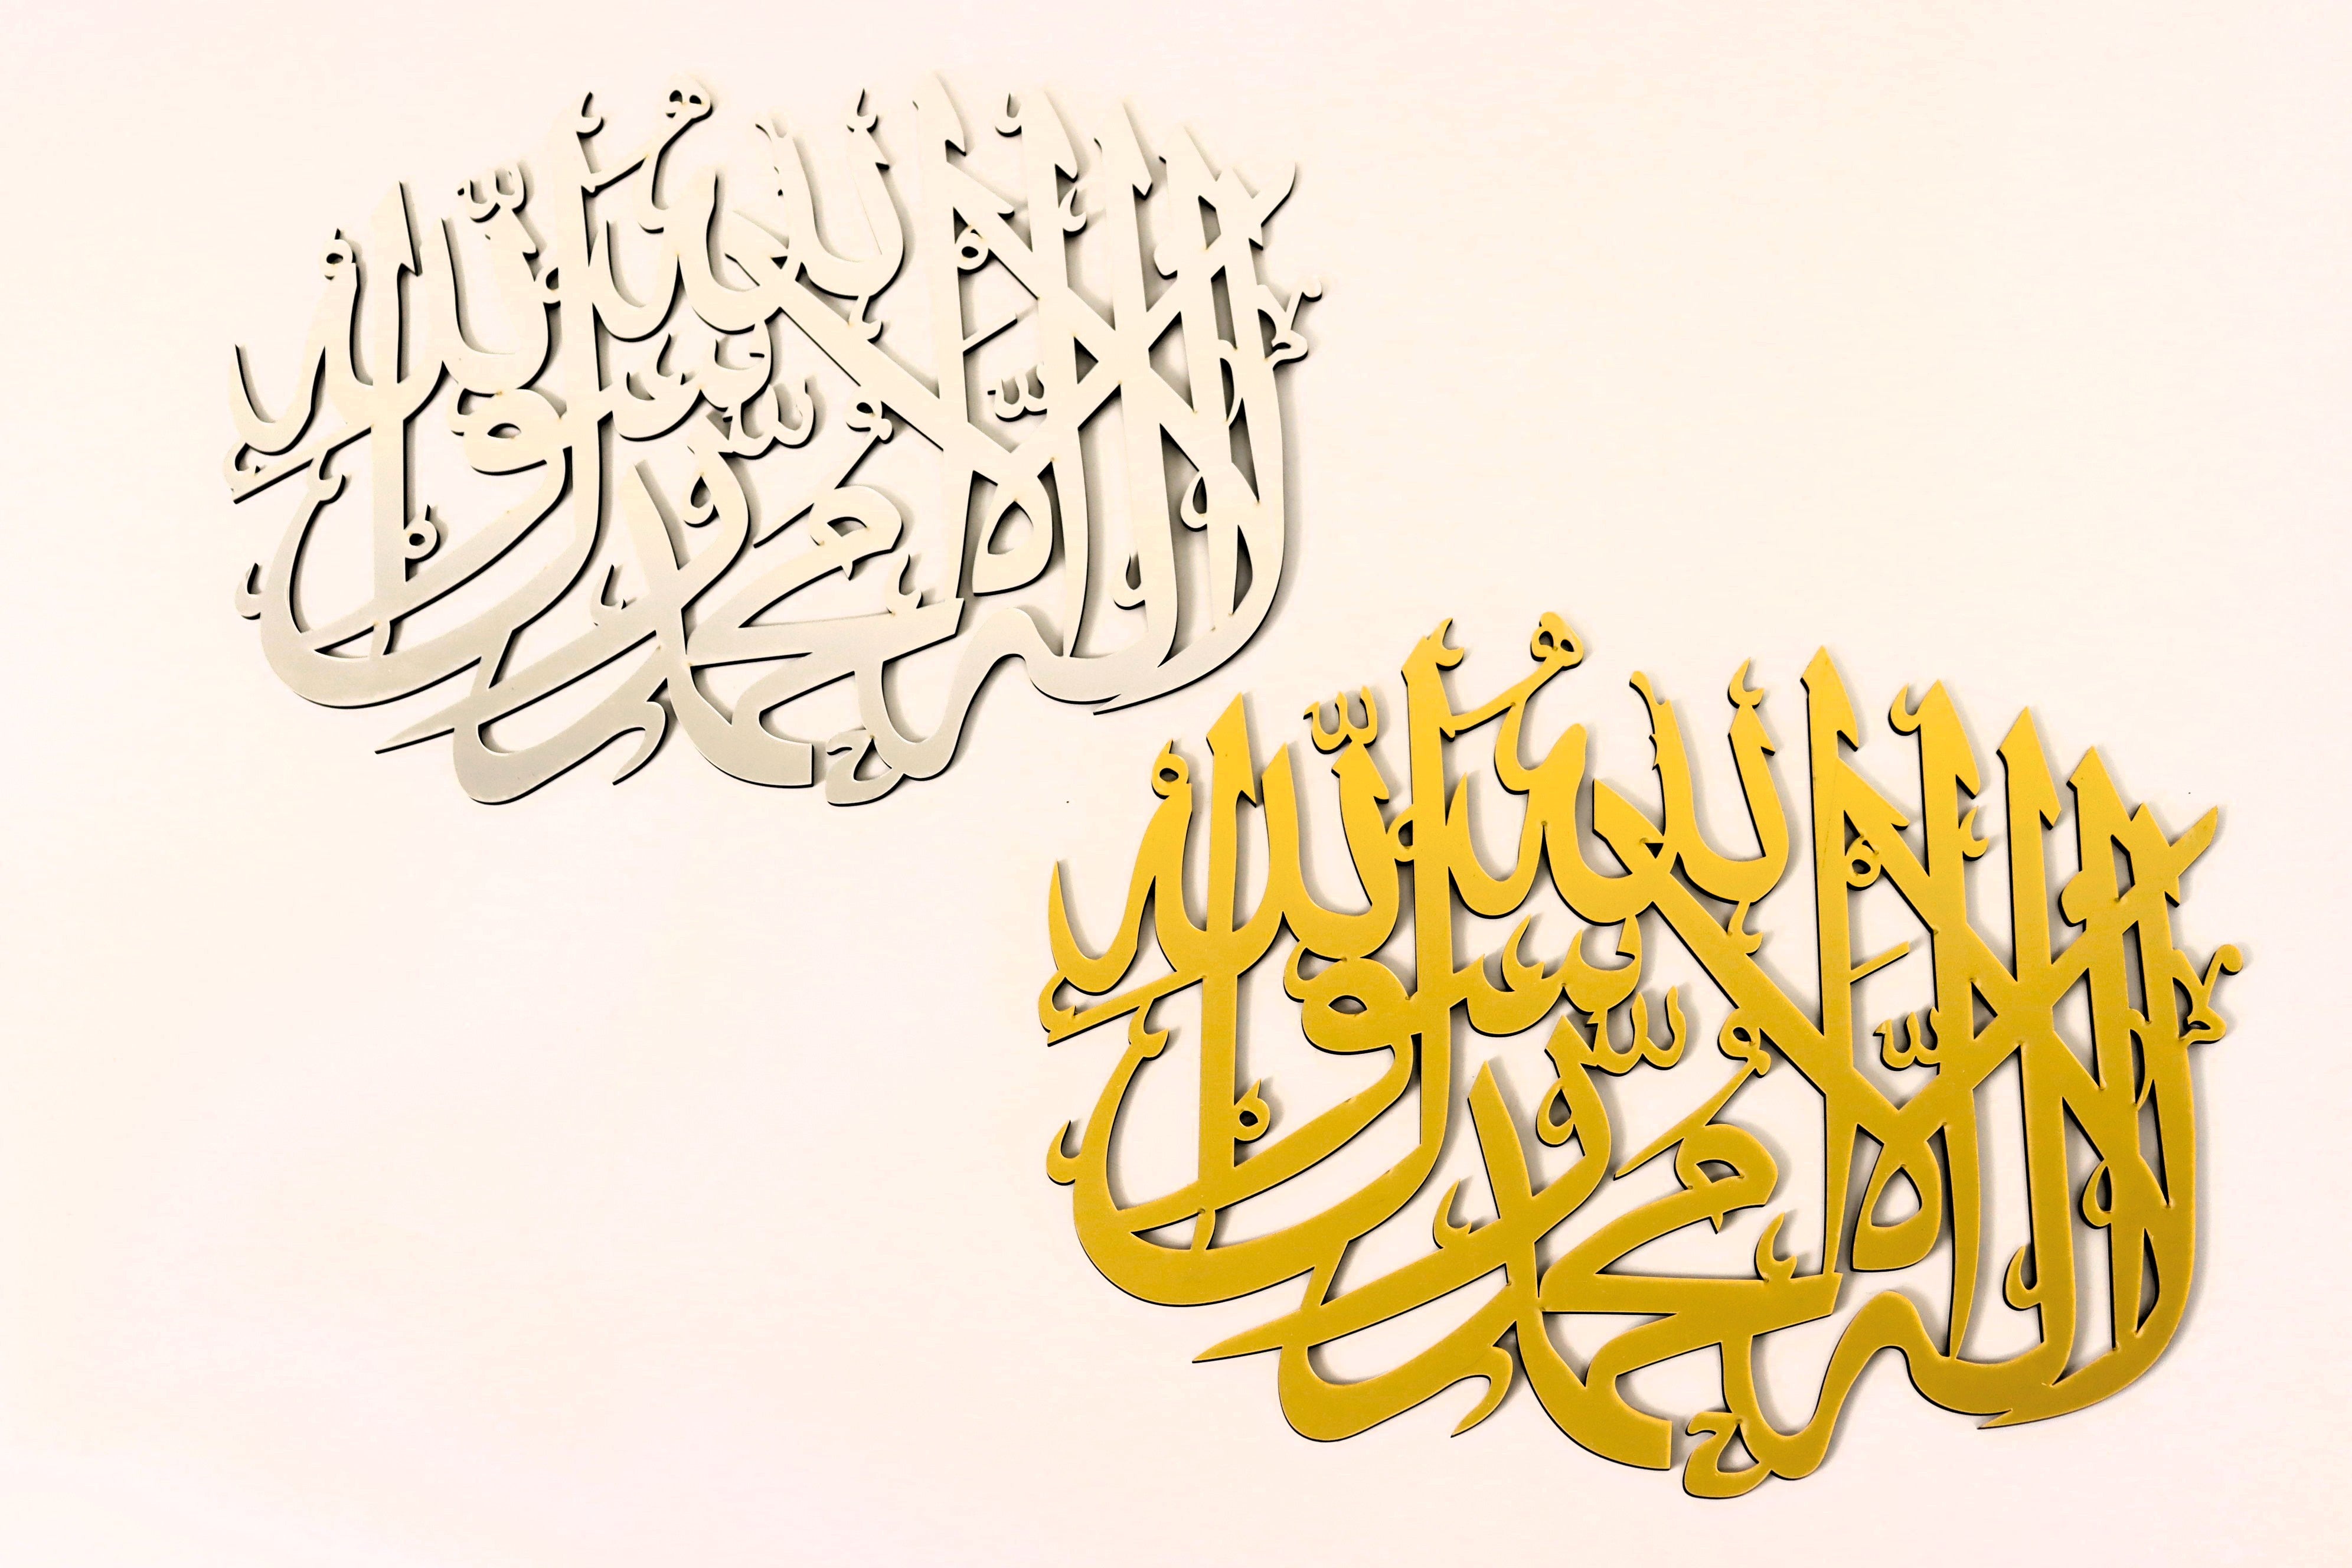 لا إله إلا الله محمد رسول الله
لا إله إلا الله محمد رسول الله